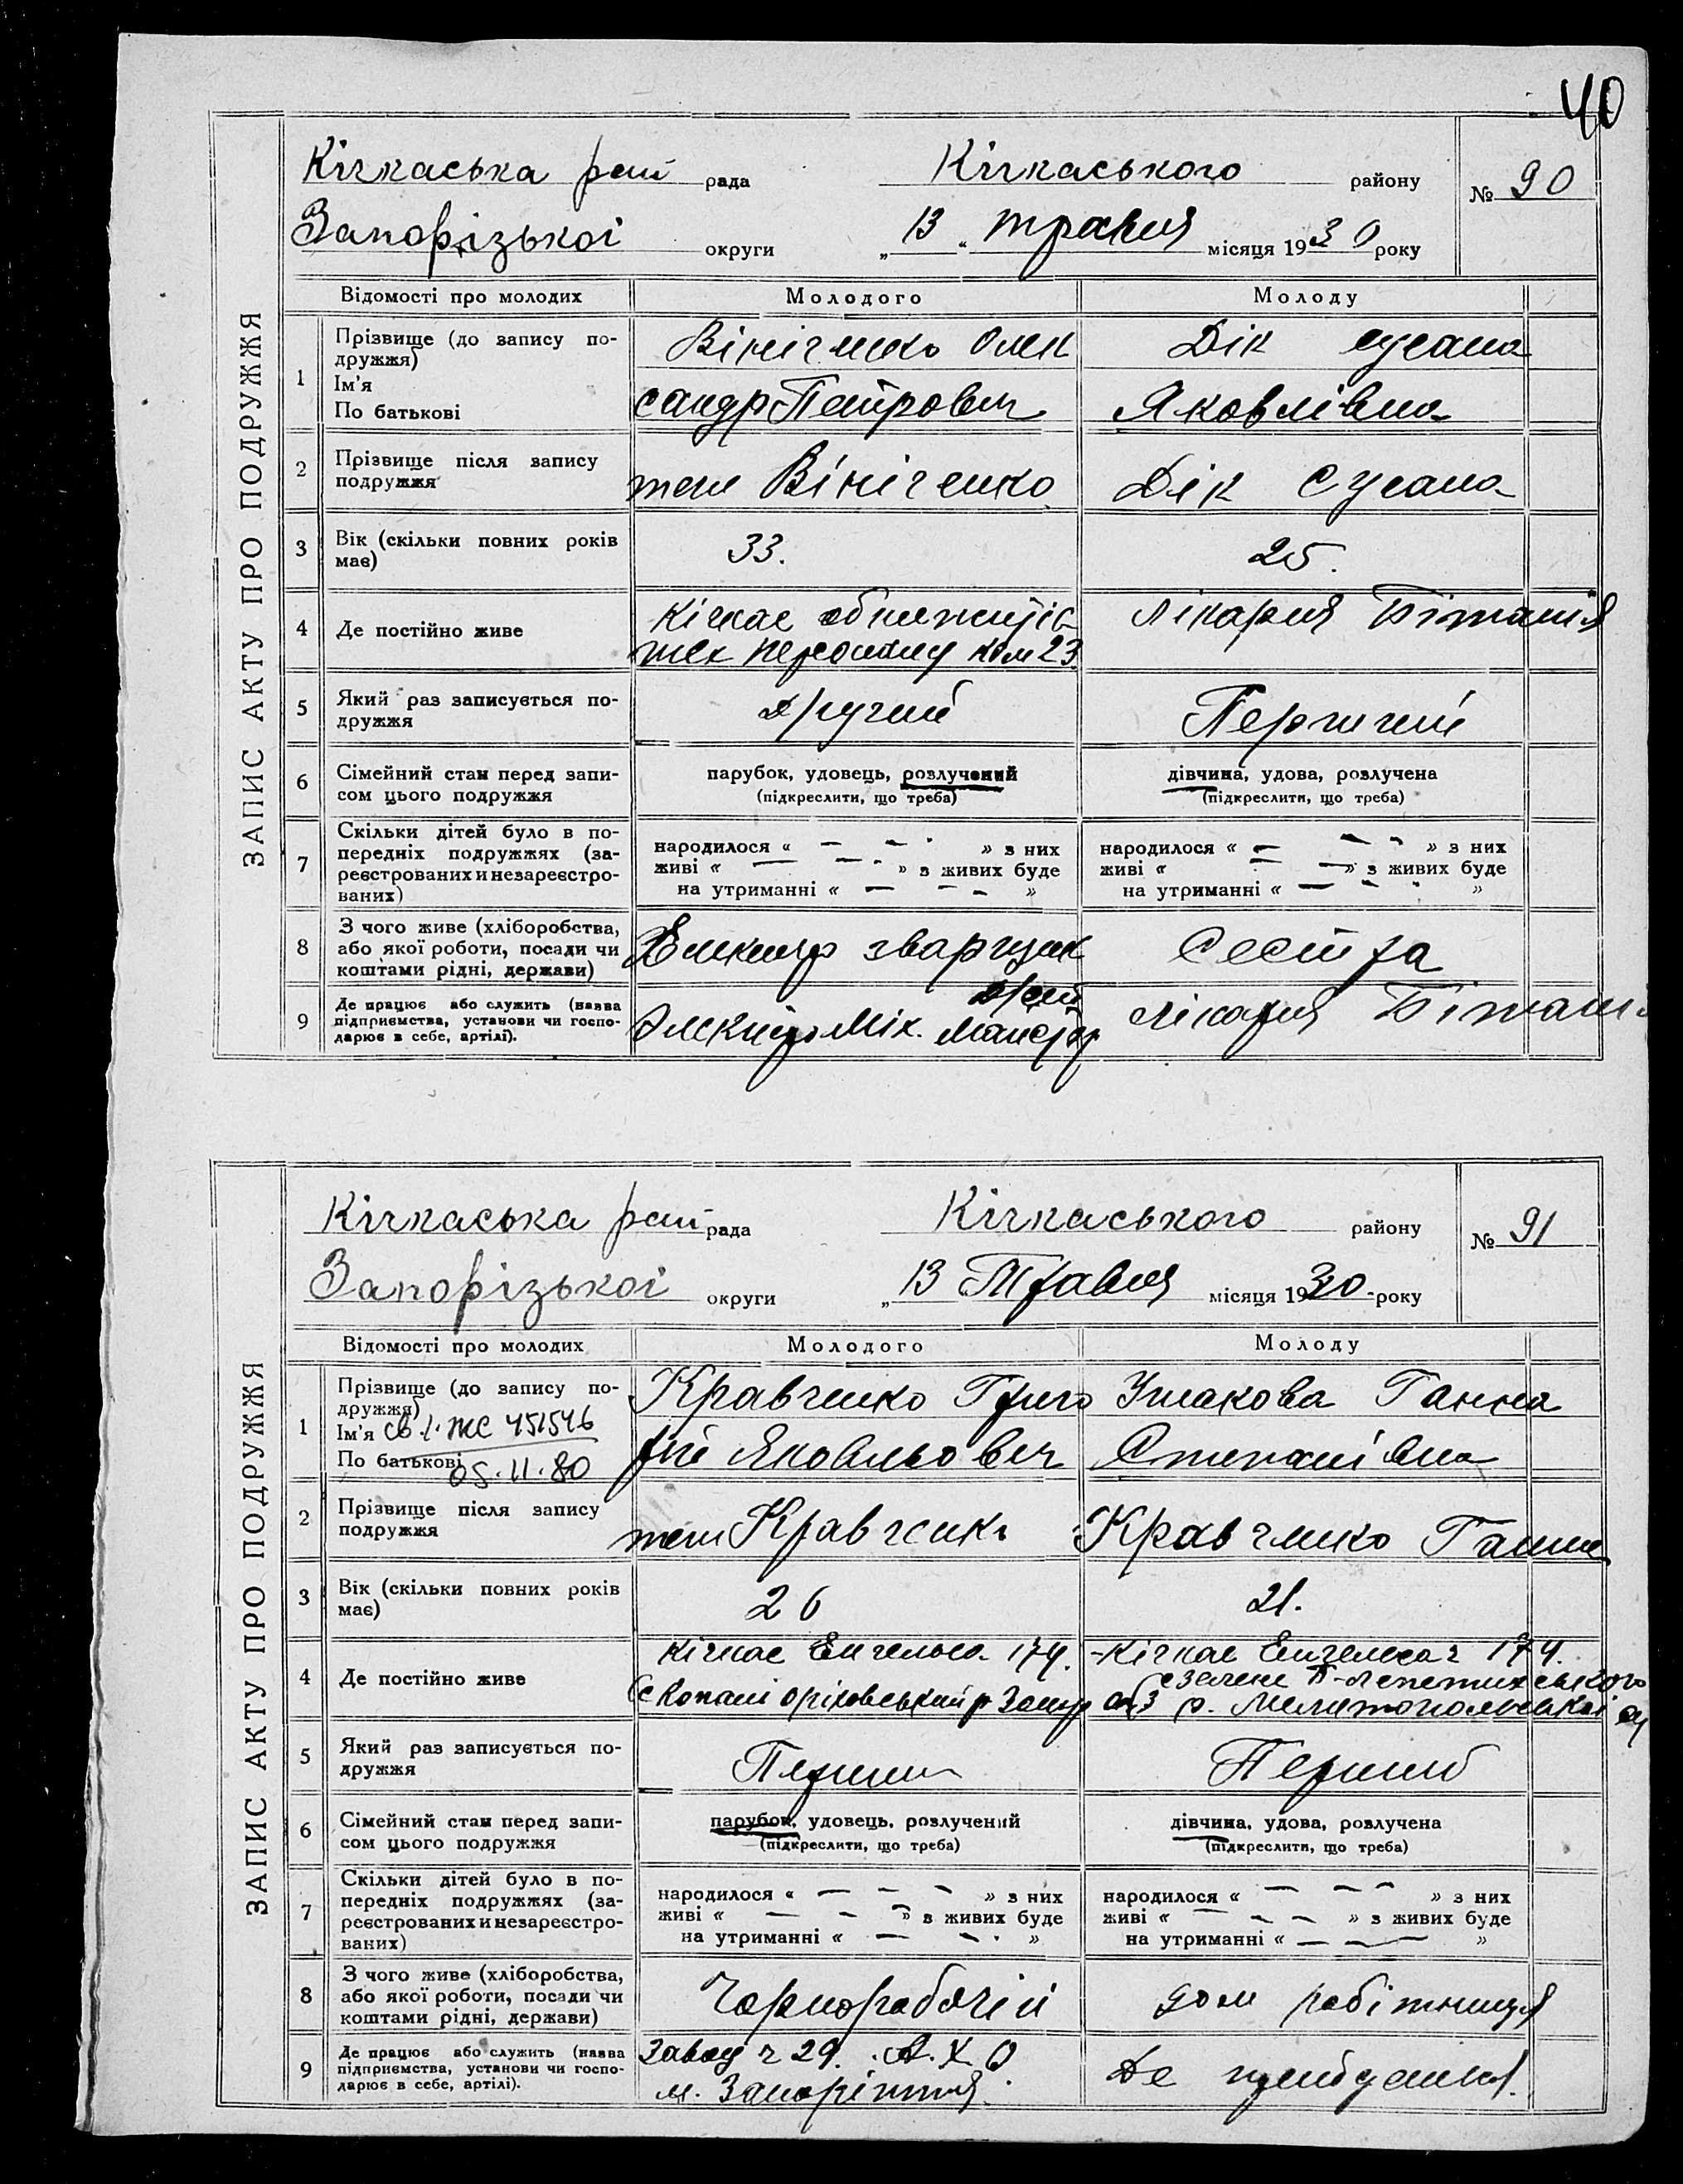 40
ЗАПИС АКТУ ПРО ПОДРУЖЖЯ
Кічкаська рай рада Кічкаського району № 90
Запорізької округи „13„ травня місяця 1930 року
Відомості про молодих Молодого Молоду
1 Прізвище (до запису по-
дружжя)
Ім'я
По батькові
Вініченко Олек
сандр Петрович
Дік Сусана
Яковлівна
2 Прізвище після запису
подружжя
теж Вініченко Дік Сусана
3 Вік (скільки повних років
має)
33. 25.
4 Де постійно живе
Кічкас
тех персоналу ком 23
лікарня Бітанія
5 Який раз записується по-
дружжя
другий Перший
6 Сімейний стан перед запи-
сом цього подружжя
парубок, удовець, розлучений
(підкреслити, що треба)
дівчина, удова, розлучена
(підкреслити, що треба)
7 Скільки дітей було в по-
передніх подружжях (за-
реєстрованих и незареєстро-
ваних)
народилося « — — - » з них
живі « — — - » з живих буде
на утриманні « — - - »
народилося « — — - » з них
живі « — — » з живих буде
на утриманні « — - - »
8 З чого живе (хліборобства,
або якої роботи, посади чи
коштами рідні, держави)
зварщик Сестра
9 Де працює або служить (назва
підприємства, установи чи госпо-
дарює в себе, артілі).
Мех. Майстер
лікарня Бітанія
ЗАПИС АКТУ ПРО ПОДРУЖЖЯ
Кічкаська рай рада Кічкаського району № 91
Запорізької округи „13 Травня місяця 1930 року
Відомості про молодих Молодого Молоду
1 Прізвище (до запису по-
дружжя)
Ім'я св. 1. ЖС 451546
По батькові 05.11.80
Кравченко Григо
рій Яковльович
Ушакова Ганна
Степанівна
2 Прізвище після запису
подружжя
теж Кравченко Кравченко Ганна
3 Вік (скільки повних років
має)
26 21.
4 Де постійно живе
Кічкас Енгельса 174.
с Копані Оріховський р Запор
Кічкас Енгельса 174.
с Зелене В-Лепетихського
р. Мелитопольської
5 Який раз записується по-
дружжя
Перший Перший
6 Сімейний стан перед запи-
сом цього подружжя
парубок, удовець, розлучений
(підкреслити, що треба)
дівчина, удова, розлучена
(підкреслити, що треба)
7 Скільки дітей було в по-
передніх подружжях (за-
реєстрованих и незареєстро-
ваних)
народилося « — - - » з них
живі « — - - » з живих буде
на утриманні « — - - »
народилося « — — - » з них
живі « — - - » з живих буде
на утриманні « — — — »
8 З чого живе (хліборобства,
або якої роботи, посади чи
коштами рідні, держави)
Чорноробочій дом робітниця
9 Де працює або служить (назва
підприємства, установи чи госпо-
дарює в себе, артілі).
Завод ч 29.
м. Запоріжжя.
Де